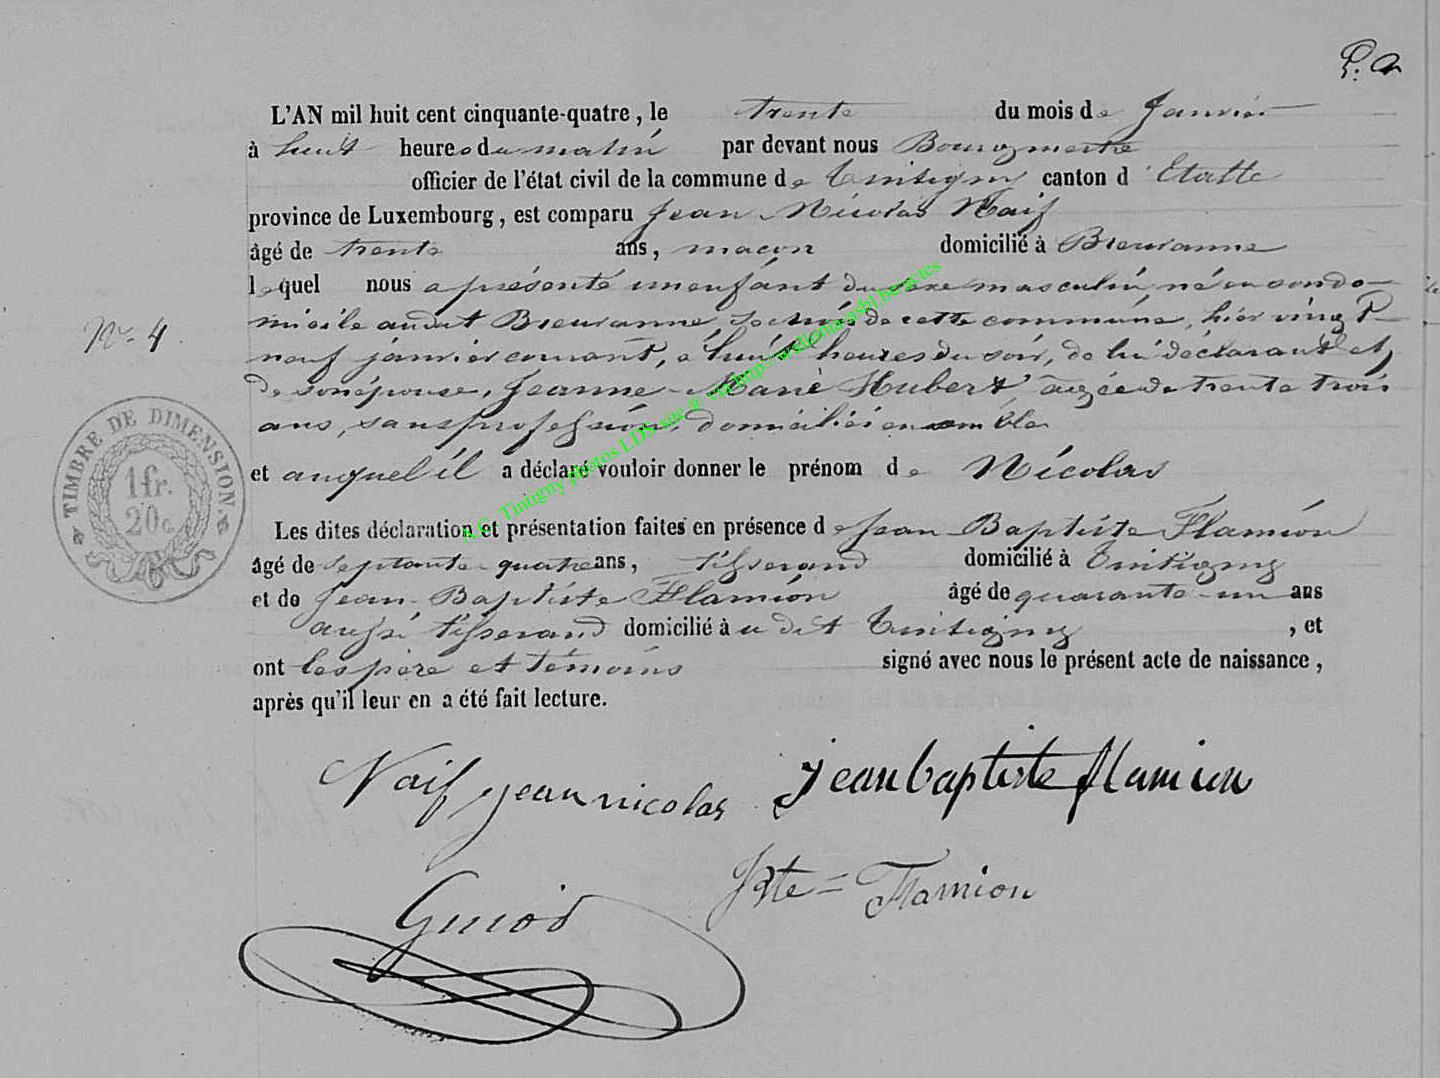 L'AN mil huit cent cinquante-quatre, le trente du mois de Janvier
à huit heures du matin par devant nous Bourgmestre
officier de l'état civil de la commune de Tintigny canton d'Etalle
province de Luxembourg, est comparu Jean Nicolas Naif
âgé de trente ans, maçon domicilié à Breuvanne
lequel nous a présenté un enfant du sexe masculin né en son do-
N°. 4 micile audit Breuvanne, de cette commune, hier vingt
neuf janvier courant, à huit heures du soir, de lui déclarant et
de son épouse, Jeanne-Marie Hubert âgée de trente trois
ans, sans profession, domiciliés ensemble
et auquel il a déclaré vouloir donner le prénom de Nicolas
Les dites déclaration et présentation faites en présence de Jean Baptiste Flamion
âgé de septante quatre ans, tisserand domicilié à Tintigny
et de Jean-Baptiste Flamion âgé de quarante-un ans
aussi tisserand domicilié à u dit Tintigny, et
ont les père et témoins signé avec nous le présent acte de naissance,
après qu'il leur en a été fait lecture.
TIMBRE DE DIMENSION.
1 fr.
20 c.
A.C. Tintigny photos LDS site g via http://wellonna asbl.be/actes
Naif jean nicolas jean baptiste flamion
Jbte = Flamion
Guiod